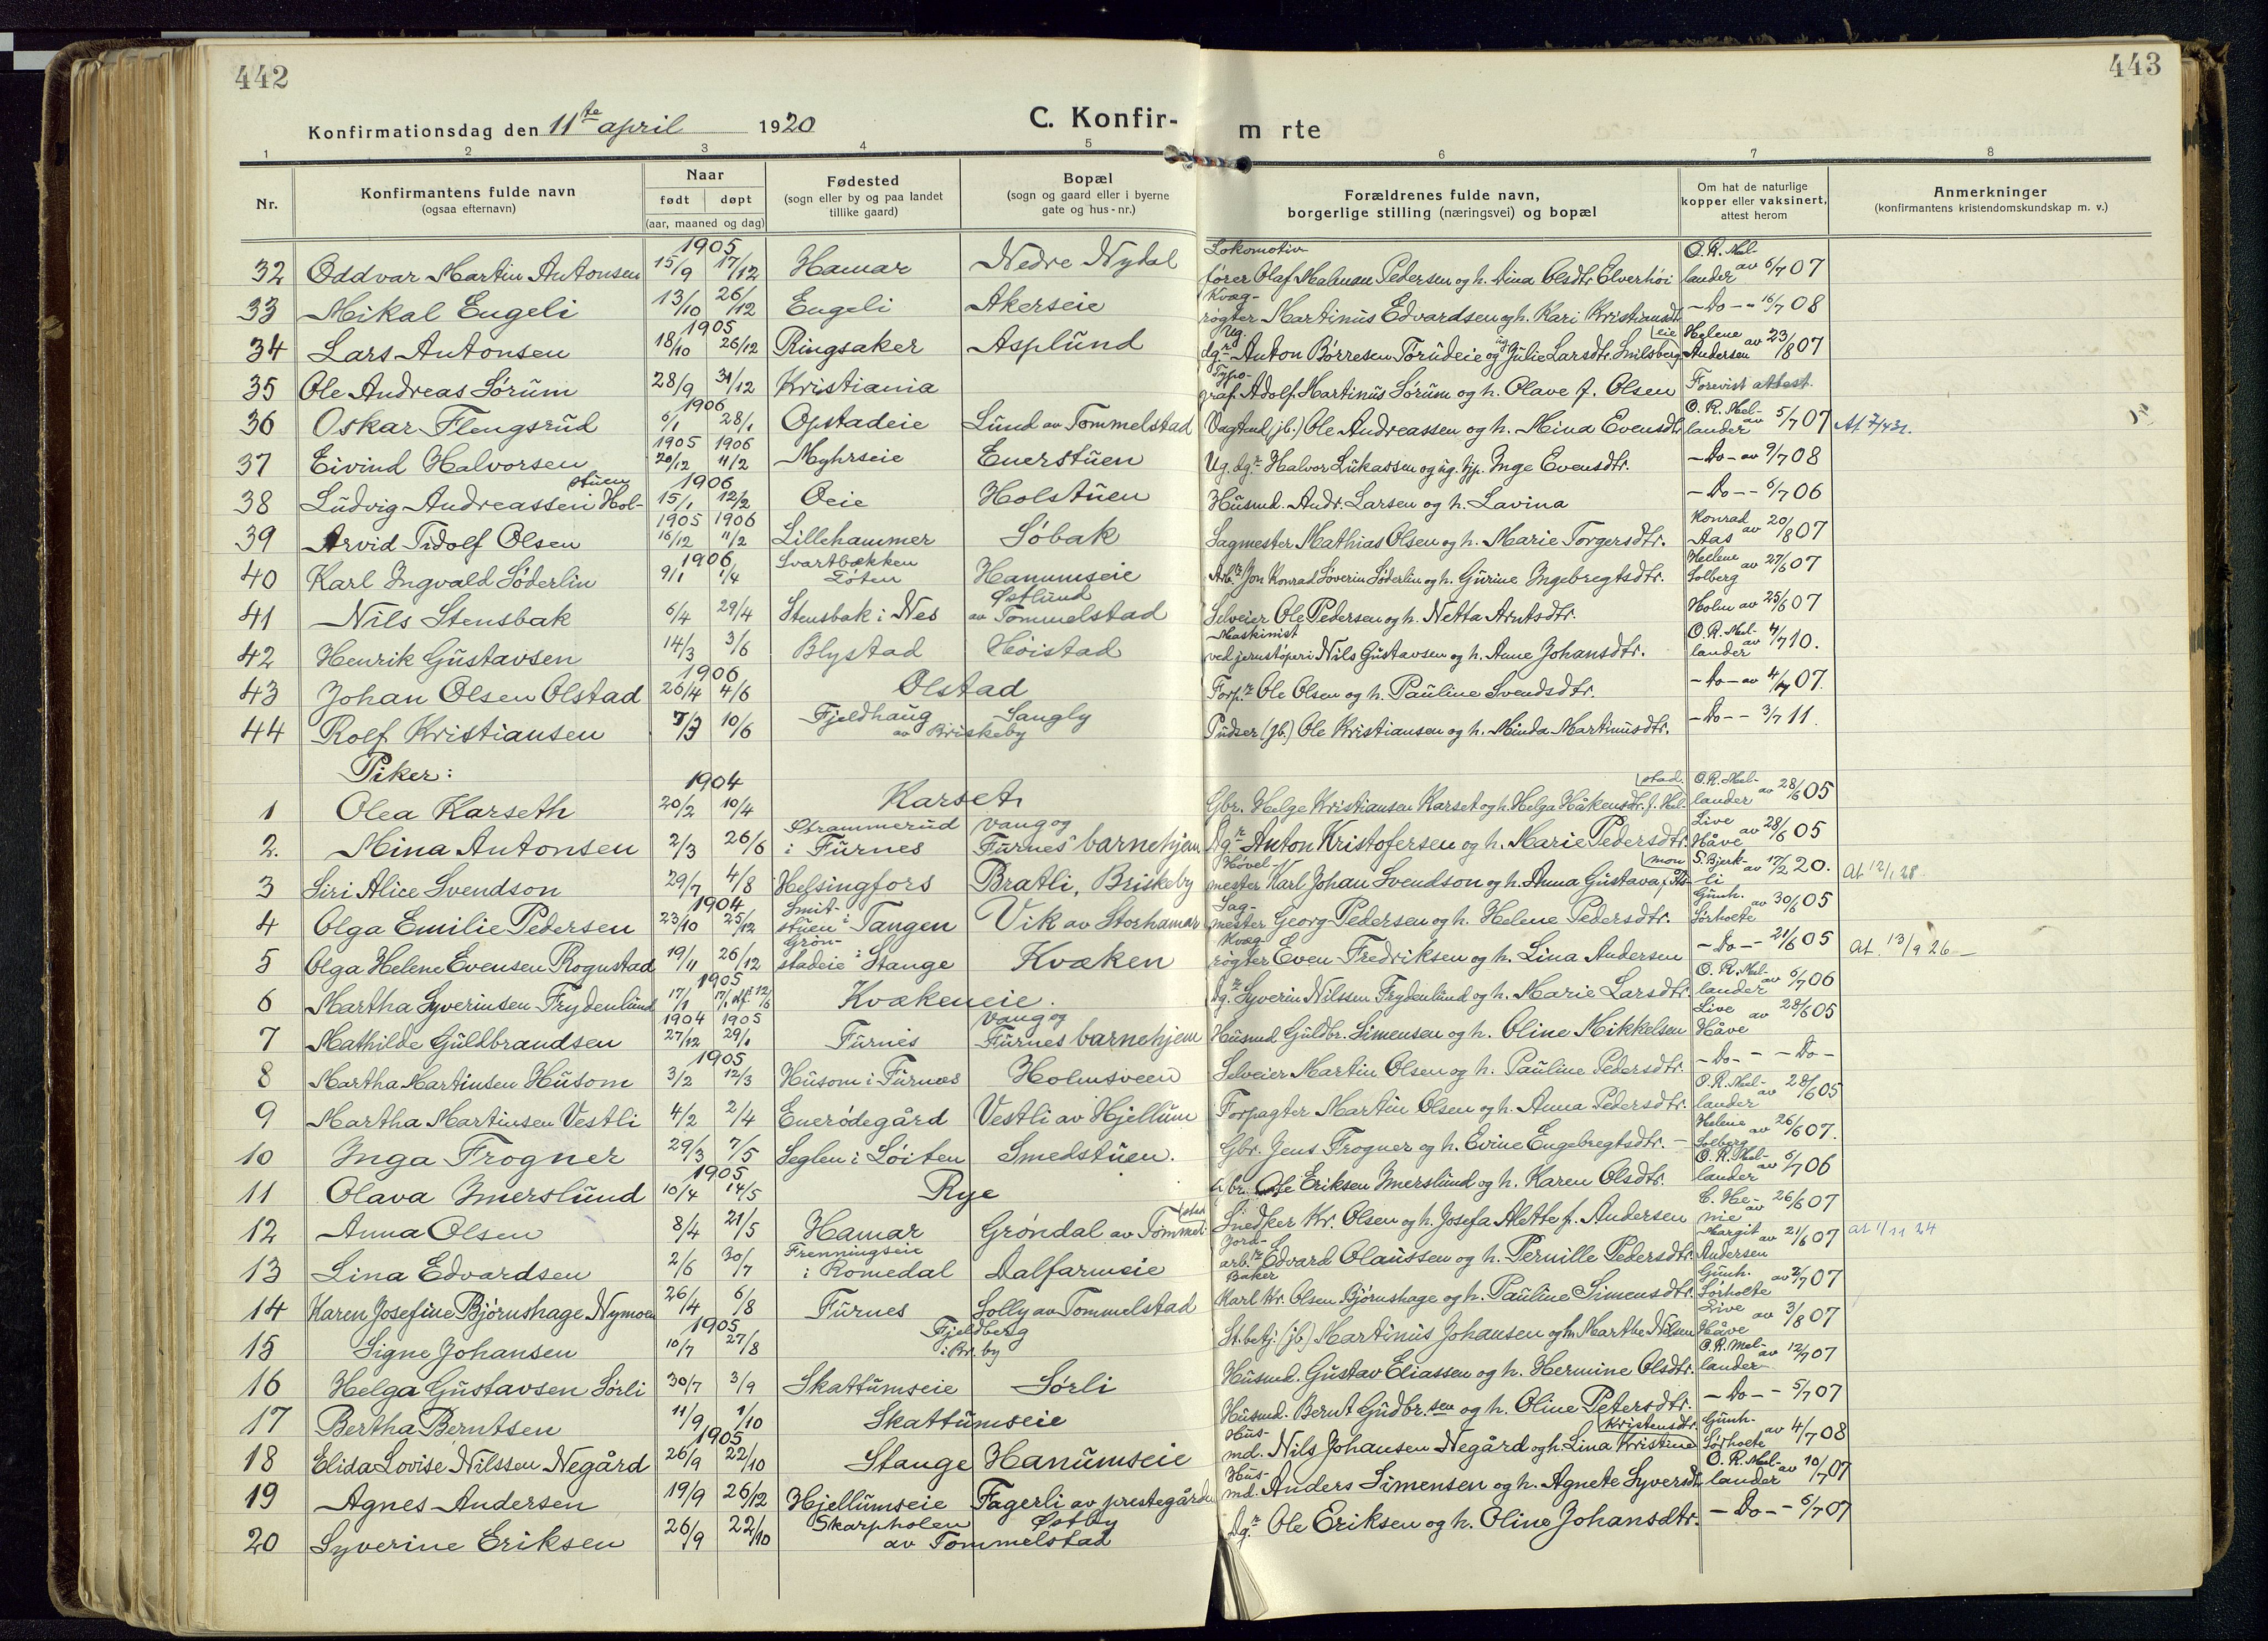 442
443
Konfirmationsdag den 11te april 1920
C. Konfir-
m rte
1 2 3 4 5 6 7 8
Nr.
Konfirmantens fulde navn
(ogsaa efternavn)
Naar
født døpt
(aar, maaned og dag)
Fødested
(sogn eller by og paa landet
tillike gaard)
Bopæl
(sogn og gaard eller i byerne
gate og hus-nr.)
Forældrenes fulde navn,
borgerlige stilling (næringsvei) og bopæl
Om hat de naturlige
kopper eller vaksinert,
attest herom
Anmerkninger
(konfirmantens kristendomskundskap m. v.)
1905
32 Oddvar Martin Antonsen 15/9 17/12 Hamar Nedre Nydal Lokomotivfører Olaf Malman Pedersen og h. Dina Olsdtr. Elverhøi O. R. Mellander av 6/7 07
33 Mikal Engeli 13/10 26/12 Engeli Akerseie Kvægrøgter Martinus Edvardsen og h. Kari Kristiansdtr. -Do- - 16/7 08
1905
34 Lars Antonsen 18/10 26/12 Ringsaker Asplund Ug. dgr. Anton Børresen Torudeie og ug. Julie Larsdtr. Smilsbergeie Helene Andersen av 23/8 07
35 Ole Andreas Sørum 28/9 31/12 Kristiania Typograf Adolf Martinus Sørum og h. Olave f. Olsen Forevist attest.
1906
36 Oskar Flengsrud 6/1 28/1 Opstadeie Lund av Tommelstad Vagtmd. (jb.) Ole Andreassen og h. Mina Evensdtr. O. R. Mellander av 5/7 07 At. 7/4 31.
1905 1906
37 Eivind Halvorsen 20/12 11/2 Myhrseie Enerstuen Ug. dgr. Halvor Lukassen og ug. tjp. Inge Evensdtr. -Do- av 9/7 08
1906
38 Ludvig Andreassen Holstuen 15/1 12/2 Oeie Holstuen Husmd. Andr. Larsen og h. Lavina -Do- - 6/7 06
1905 1906
39 Arvid Tidolf Olsen 16/12 11/2 Lillehammer Søbak Sagmester Mathias Olsen og h. Marie Torgersdtr. Konrad Aas av 20/8 07
1906
40 Karl Ingvald Søderlin 9/1 1/4 Svartbækken Toten Hanumseie Arb.r Jon Konrad Søverin Søderlin og h. Gurine Ingebregtsdtr. Helene Solberg av 27/6 07
41 Nils Stensbak 6/4 29/4 Stensbak i Nes Østlund av Tommelstad Selveier Ole Pedersen og h. Netta Arntsdtr. Holm av 25/6 07
42 Henrik Gustavsen 14/3 3/6 Blystad Høistad Maskinist ved jernstøperi Nils Gustavsen og h. Anne Johansdtr. O. R. Mellander av 4/7 10.
1906
43 Johan Olsen Olstad 26/4 4/6 Olstad Forp.r Ole Olsen og h. Pauline Svendsdtr. -Do- av 4/7 07.
44 Rolf Kristiansen 7/3 10/6 Fjeldhaug Sangly av Briskeby Pudser (jb.) Ole Kristiansen og h. Minda Martinusdtr. -Do- - 3/7 11.
Piker:
1904
1 Olea Karseth 20/2 10/4 Karset Gbr. Helge Kristiansen Karset og h. Helga Håkensdtr. f. Helstad. O. R. Mellander av 28/6 05
2. Mina Antonsen 2/3 26/6 Strammerud i Furnes Vang og Furnes barnehjem Dg.r Anton Kristofersen og h. Marie Pedersdtr. Live Håve av 28/6 05
3 Siri Alice Svendson 29/7 4/8 Helsingfors Bratli, Briskeby Høvelmester Karl Johan Svendson og h. Anna Gustava S. Bjerkli av 17/2 20. at 12/1 28
1904
4 Olga Emilie Pedersen 23/10 25/12 Smitstuen i Tangen Vik av Storhamar Sagmester Georg Pedersen og h. Helene Pedersdtr. Gunh. Sørholte av 30/6 05
5 Olga Helene Evensen Rognstad 19/11 26/12 Grønstadeie i Stange Kvæken Kvægrøgter Even Fredriksen og h. Lina Andersen -Do- - 21/6 05 at. 13/9 26
1905
6 Martha Syverinsen Frydenlund 17/1 17/1 12/6 Kvækeneie. Dg.r Syverin Nilssen Frydenlund og h. Marie Larsdtr. O. R. Mellander av 6/7 06
1904 1905
7 Mathilde Guldbrandsen 27/12 29/1 Furnes Vang og Furnes barnehjem Husmd. Guldbr. Simensen og h. Oline Mikkelsen Live Håve av 28/6 05
1905
8 Martha Martinsen Husom 3/2 12/3 Husom i Furnes Holmsveen Selveier Martin Olsen og h. Pauline Pedersdtr. -Do- - -Do-
9 Martha Martinsen Vestli 4/2 2/4 Enerødegård Vestli av Hjellum Forpagter Martin Olsen og h. Anna Pedersdtr. O. R. Mellander av 28/6 05
10 Inga Frogner 29/3 7/5 Seglen i Løiten Smedstuen. Gbr. Jens Frogner og h. Evine Engebregtsdtr. Helene Solberg av 26/6 07.
1905
11 Olava Imerslund 10/4 14/5 Rye Gbr. Ole Eriksen Imerslund og h. Karen Olsdtr. O. R. Mellander av 6/7 06
12 Anna Olsen 8/4 21/5 Hamar Grøndal av Tommelstad Snedker Kr. Olsen og h. Josefa Alette f. Andersen C. Henie av 26/6 07
13 Lina Edvardsen 2/6 30/7 Frenningseie i Romedal Dalfarmeie Jordarb.r Edvard Olaussen og h. Pernille Pedersdtr. Margit Andersen av 21/6 07 at 1/11 24
14 Karen Josefine Bjørnshage Nymoen 26/4 6/8 Furnes Solly av Tommelstad Baker Karl Kr. Olsen Bjørnshage og h. Pauline Simensdtr. Gunh. Sørholte av 2/7 07
1905
15 Signe Johansen 10/7 27/8 Fjeldberg i Br.by St.betj. (jb.) Martinus Johansen og h. Marthe Nilsen Live Håve av 3/8 07
16 Helga Gustavsen Sørli 30/7 3/9 Skattumseie Sørli Husmd. Gustav Eliassen og h. Hermine Olsdtr. O. R. Mellander av 12/7 07
17 Bertha Berntsen 11/9 1/10 Skattumseie Husmd. Bernt Gudbr.sen og h. Oline Petersdtr. -Do- - 5/7 07
1905
18 Elida Lovise Nilssen Negård 26/9 22/10 Stange Hanumseie Husmd. Nils Johansen Negård og h. Lina Kristine Kristensdtr. Gunh. Sørholte av 4/7 08
19 Agnes Andersen 19/9 26/12 Hjellumseie Fagerli av prestegården Husmd. Anders Simensen og h. Agnete Syversdtr. O. R. Mellander av 10/7 07
20 Syverine Eriksen 26/9 22/10 Skarpholen Østby av Tommelstad Dg.r Ole Eriksen og h. Oline Johansdtr. -Do- - 6/7 07